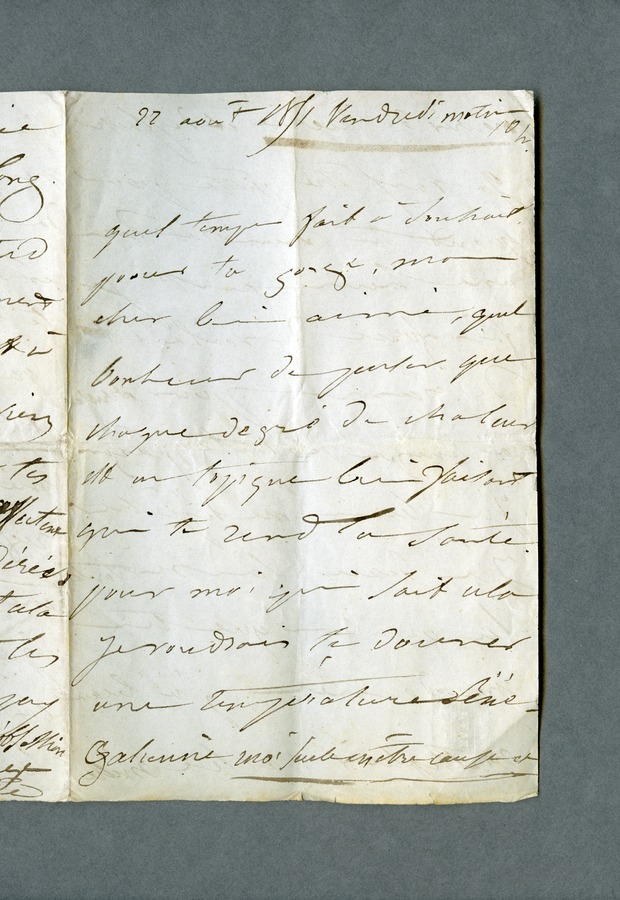 22 aout 1851 Vendredi matin
10h.
quel temps fait à souhait
pour ta gorge, mon
cher bien aimé, quel
bonheur de penser que
chaque degré de chaleur
est un topique bienfaisant
qui te rend la santé.
pour moi qui sait cela
je voudrais te donner
une température Séné-
galienne moi seule en être cause et